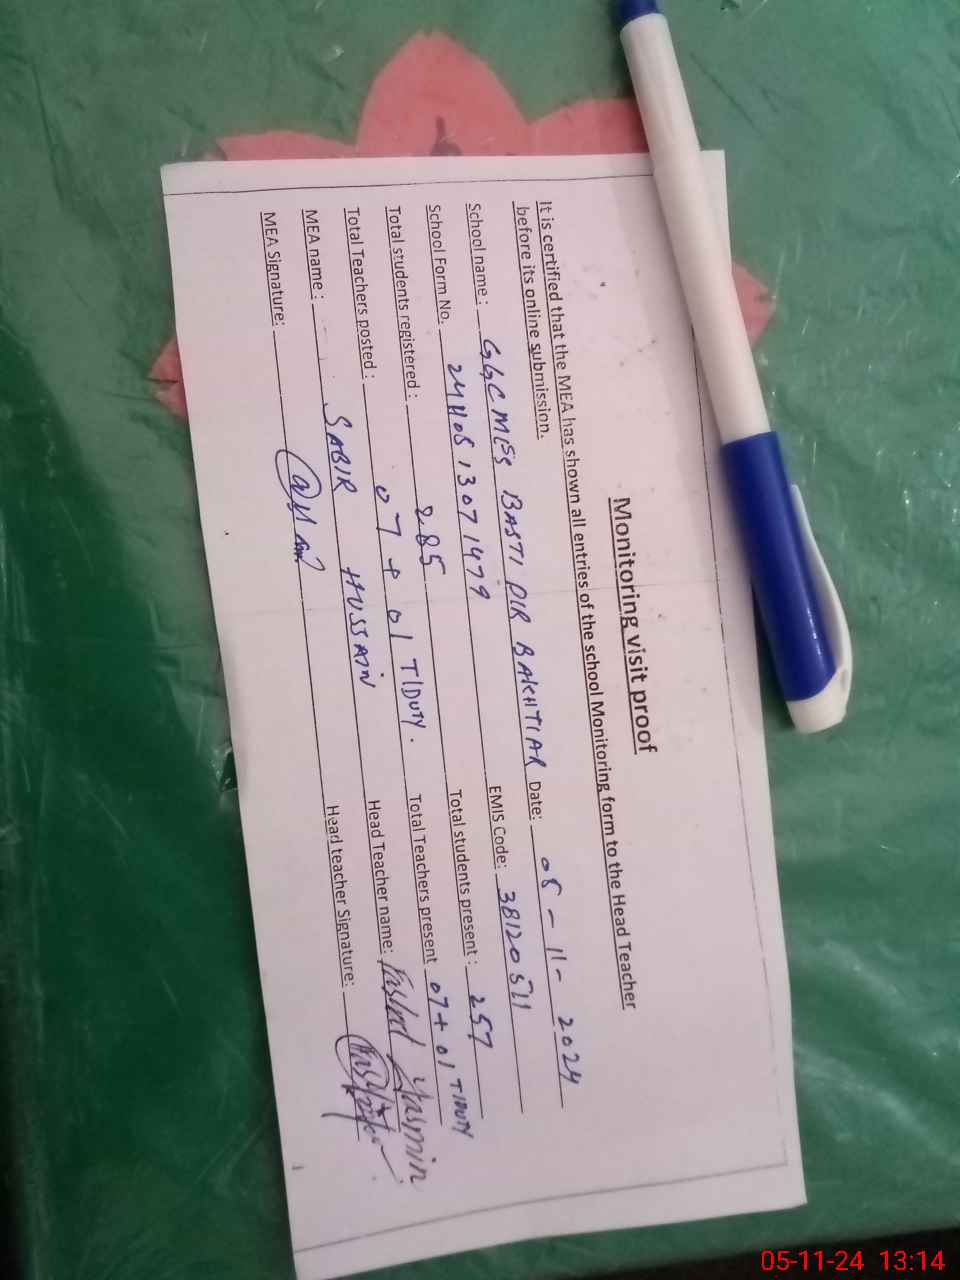 Monitoring visit proof
It is certified that the MEA has shown all entries of the school Monitoring form to the Head Teacher
before its online submission.
School name : BASTI PIR BAKHTIAR Date: 05-11-2024
School Form No. 13071479 EMIS Code: 38120511
Total students registered : 285 Total students present : 257
Total Teachers posted : 07 + 01 T/DUTY. Total Teachers present 07 + 01 T/DUTY
MEA name : SABIR HUSSAIN Head Teacher name: Yasmin
MEA Signature: Head teacher Signature:
05-11-24 13:14